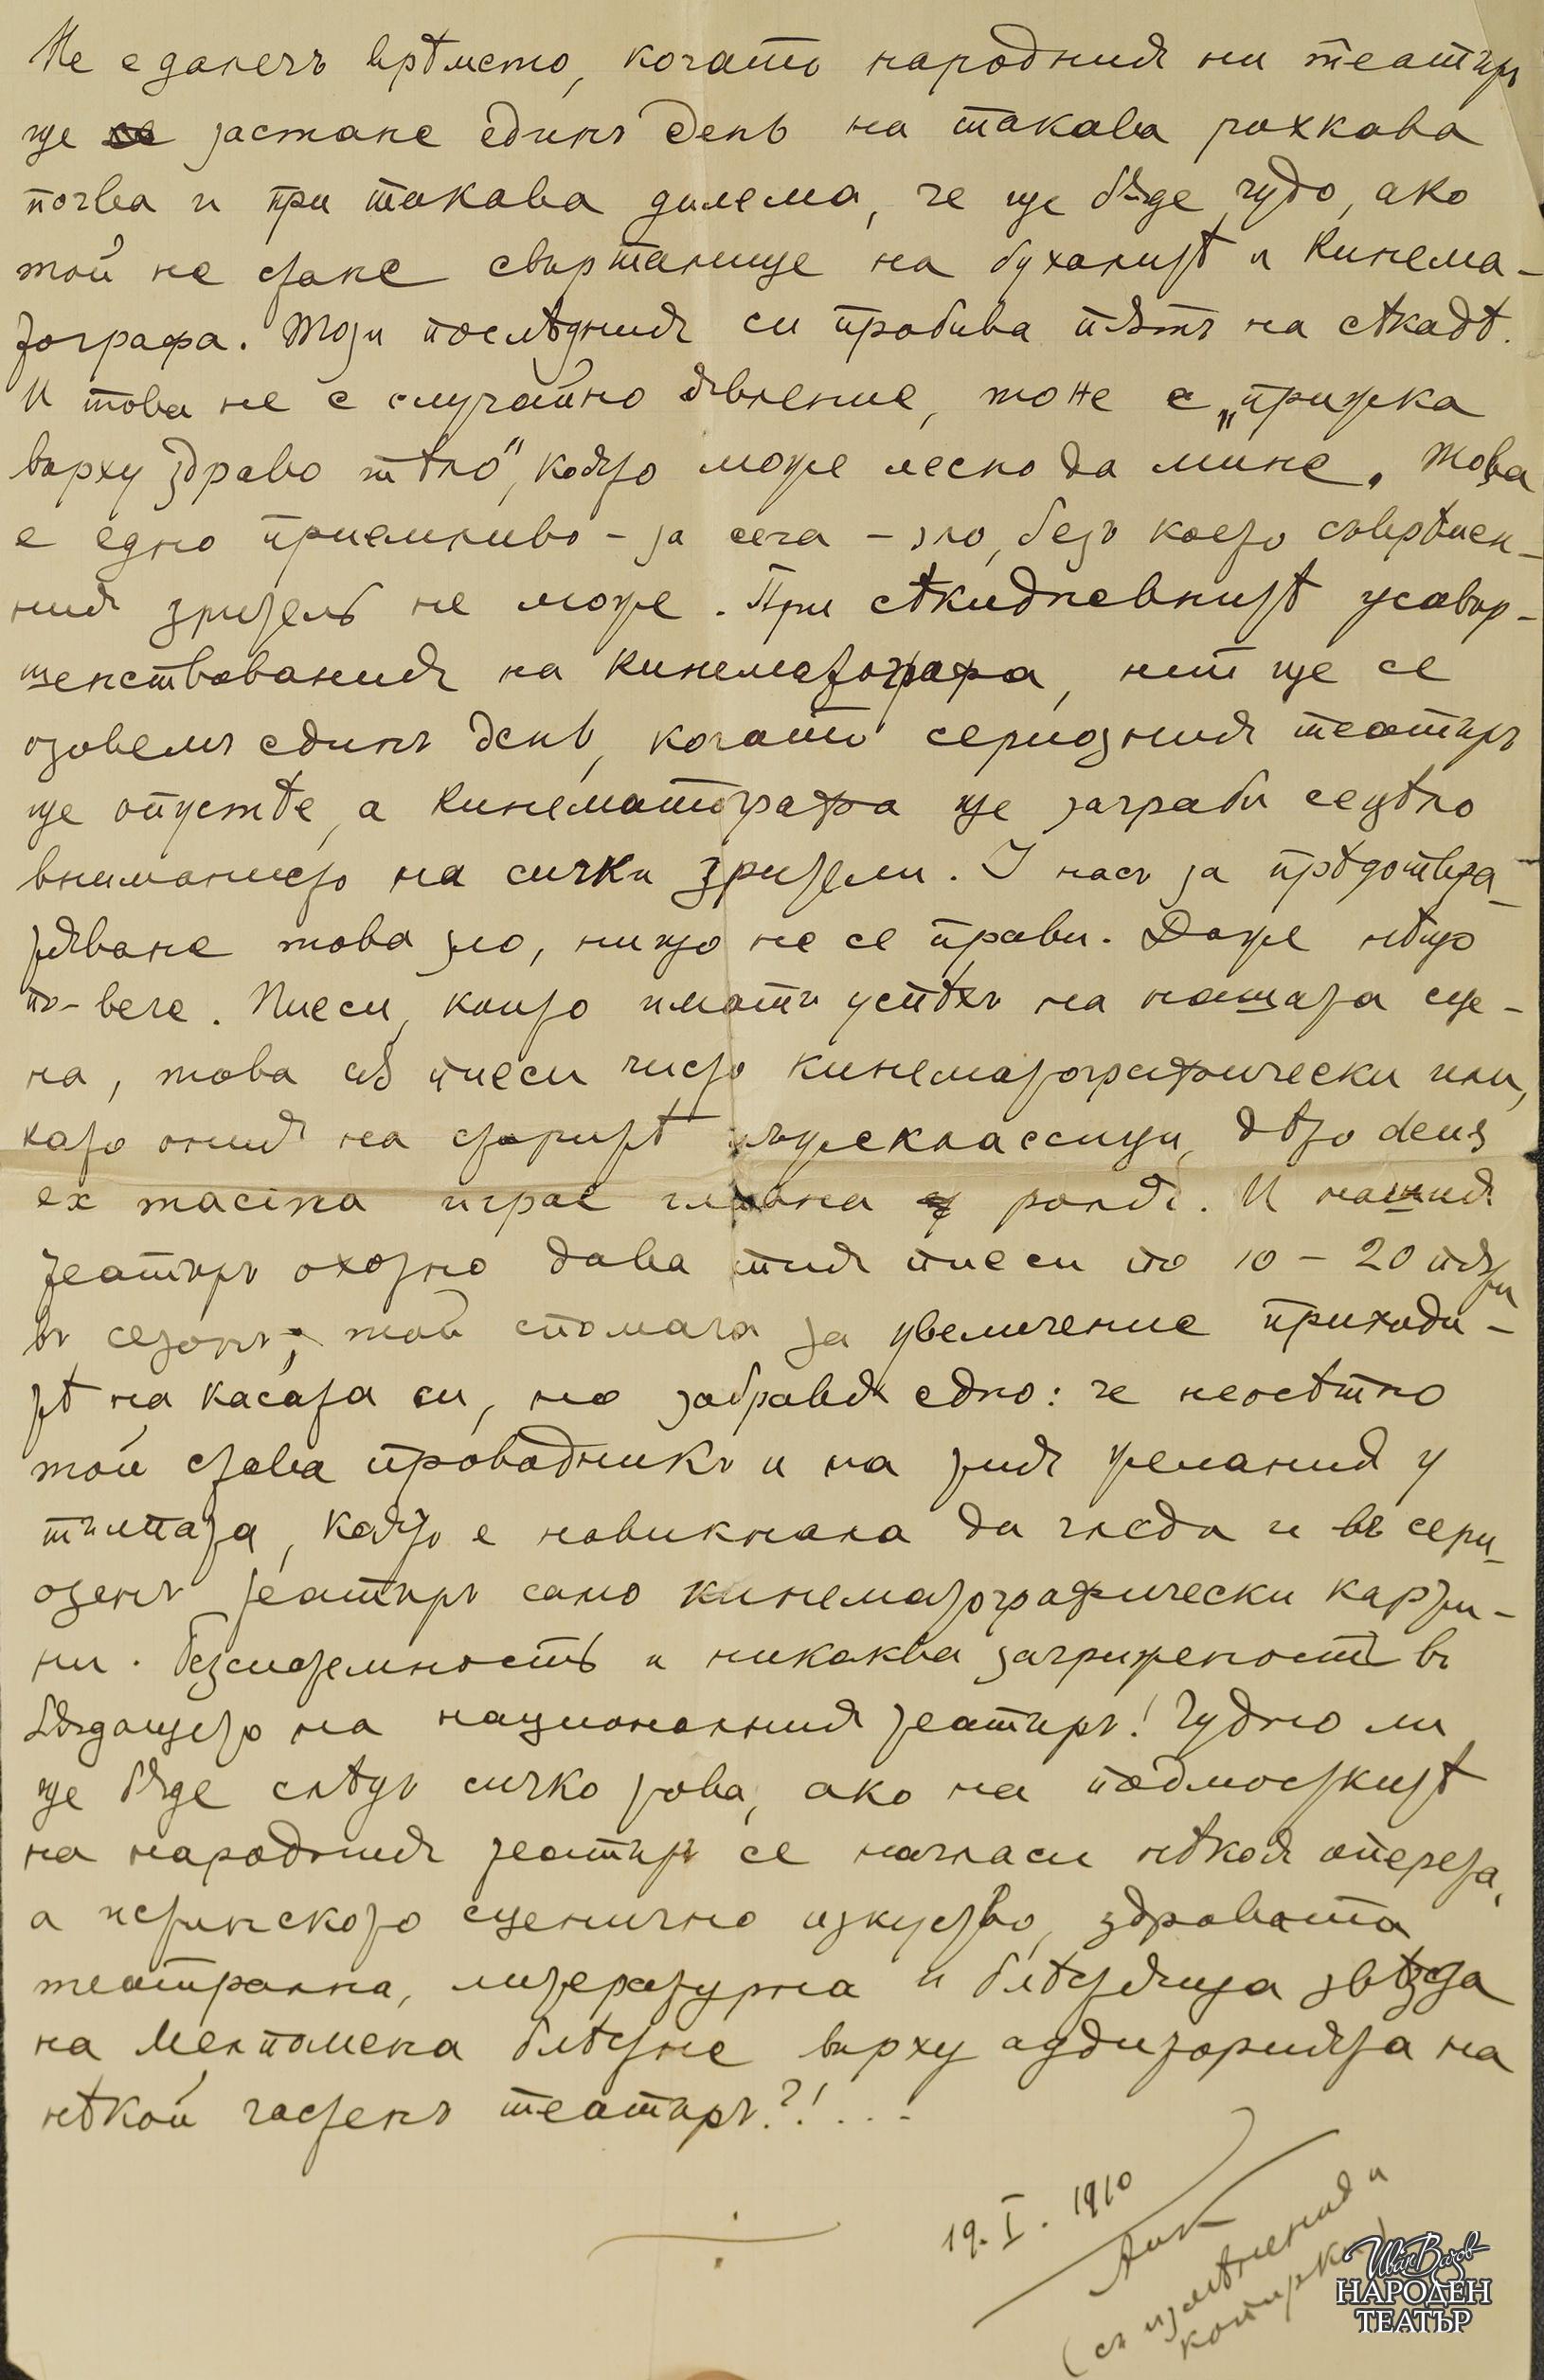 Не е далечъ врѣмето, когато народния ни театъръ
ще се застане единъ день на такава рохкава
почва и при такава дилема, че ще бѫде чудо, ако
той не стане свърталище на бухалитѣ и кинема-
тографа. Този послѣдния си пробива пѫть на сѣкадѣ.
И това не е случайно явление, то не е „пришка
върху здраво тѣло", която може лесно да мине. Това
е едно приемливо - за сега - зло, безъ което съврѣмен-
ния зритель не може. При сѣкидневнитѣ усъвър-
шенствования на кинематографа, ний ще се
озовемъ единъ день, когато сериозния театъръ
ще опустѣе, а кинематографа ще заграби сецѣло
вниманието на сички зрители. У насъ за прѣдотвра-
тяване това зло, нищо не се прави. Даже нѣщо
по-вече. Пиеси, които иматъ успѣхъ на нашата сце-
на, това сѫ пиеси чисто кинематографически или,
като ония на старитѣ лъжекласици, дѣто deus
ex macina играе главна роля. И нашия
театъръ охотно дава тия пиеси по 10 - 20 пѫти
въ сезонъ; той спомага за увеличение приходи-
тѣ на касата си, но забравя едно: че неосѣтно
той става проводникъ и на тия желания у
тълпата, която е навикнала да гледа и въ сери-
озенъ театъръ само кинематографически карти-
ни. Безсистемность и никаква загриженость въ
бѫдащето на националния театъръ! Чудно ли
ще бѫде слѣдъ сичко това, ако на подмосткитѣ
на народния театъръ се нагласи нѣкоя оперета,
а истинското сценично изкуство, здравата
театрална, литературна и блѣстяща звѣзда
на Мелпомена блѣсне върху аудиторията на
нѣкой частенъ театъръ?!...
19. I. 1910
(съ измѣнения и
Иван Вазов
НАРОДЕН
ТЕАТЪР